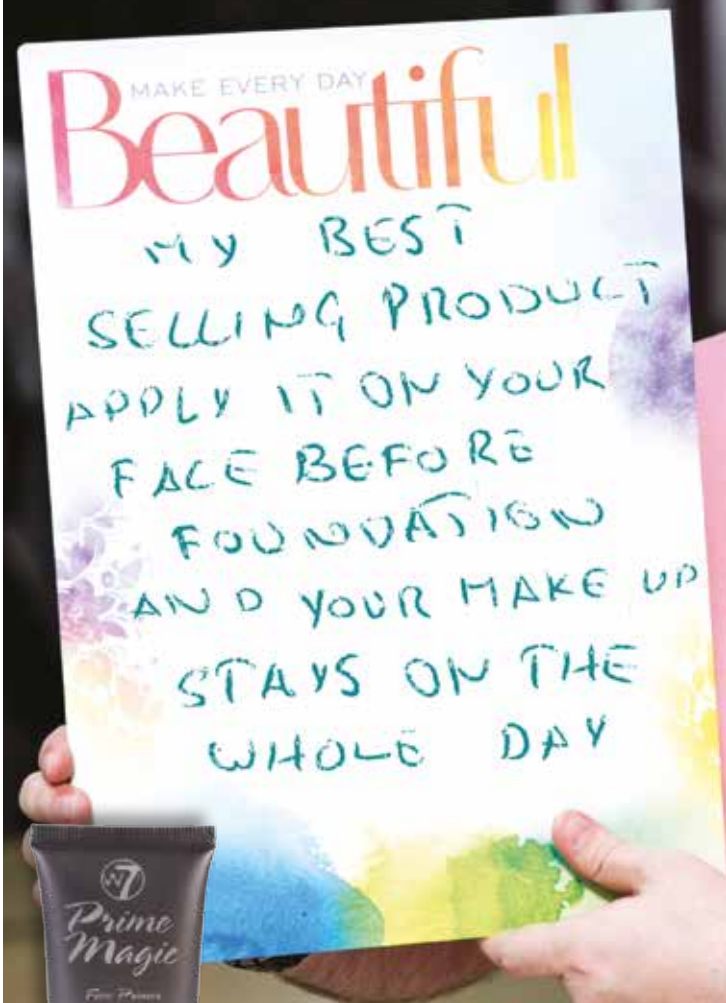 MAKE EVERY DAY
Beautiful
MY BEST
SELLING PRODUCT
APPLY IT ON YOUR
FACE BEFORE
FOUNDATION
AND YOUR MAKE UP
STAYS ON THE
WHOLE DAY
W7
Prime
Magic
Face Primer